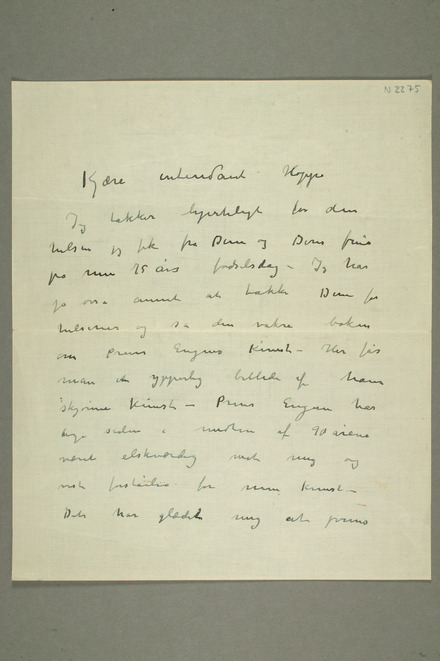 N 2275
Kjære intendant Hoppe
Jeg takker hjerteligt for den
hilsen jeg fik fra Dem og Deres frue
på min 75 års fødselsdag – Jeg har
jo også annet at takke Dem for
hilsener og så den vakre boken
om Prins Eugens Kunst – Her får
man et ypperlig billede af hans
skjønne Kunst – Prins Eugen har
siden i midten af 90 årene
været elskværdig mot mig og
vist forståelse for min Kunst –
Det har glædet mig at prins